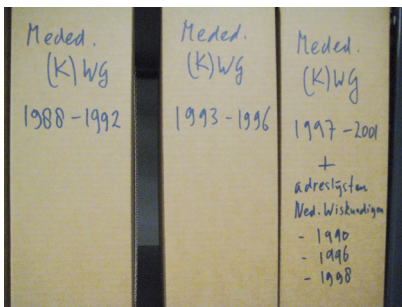 Meded.
(K)WG
1988-1992
Meded.
(K)WG
1993-1996
Meded.
(K)WG
1997-2001
+
adreslijsten
Ned. Wiskundigen
- 1990
- 1996
- 1998